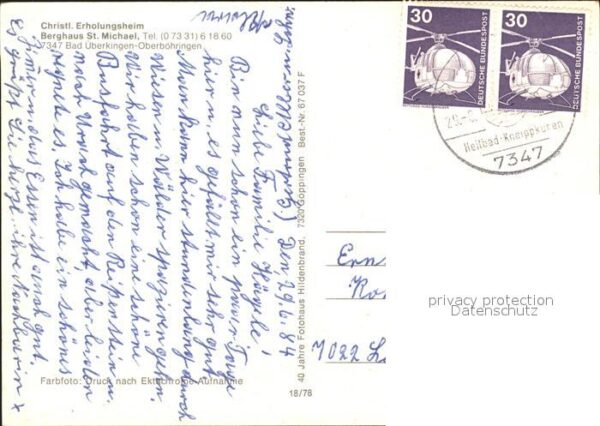 Christl. Erholungsheim
Berghaus St. Michael, Tel. (0 73 31) 6 18 60
7347 Bad Überkingen-Oberböhringen
30
DEUTSCHE BUNDESPOST
30
DEUTSCHE BUNDESPOST
29.-6.
Heilbad-Kneippkuren
7347
Den, 29.6.84
Liebe Familie
Bin nun schon ein paar Tage
hier, es gefällt mir sehr gut.
Man kann hier stundenlang durch
Wiesen u. Wälder spazieren gehen.
Wir haben schon eine schöne
Busfahrt auf den Reißenstein u.
nach Urach gemacht, aber leider
regnete es. Ich habe ein schönes
Zimmer, das Essen ist auch gut.
Es grüßt Sie herzl. ihre Nachbarin
40 Jahre Fotohaus Hildenbrand, 7320 Göppingen Best.-Nr. 67 037 F
Ern
7022 L
privacy protection
Datenschutz
Farbfoto: Druck nach Ektachrome-Aufnahme
18/78